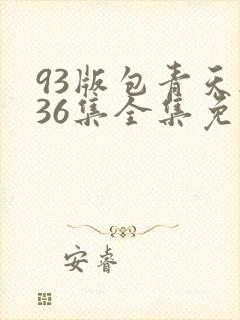 93版包青天
36集全集免
安睿